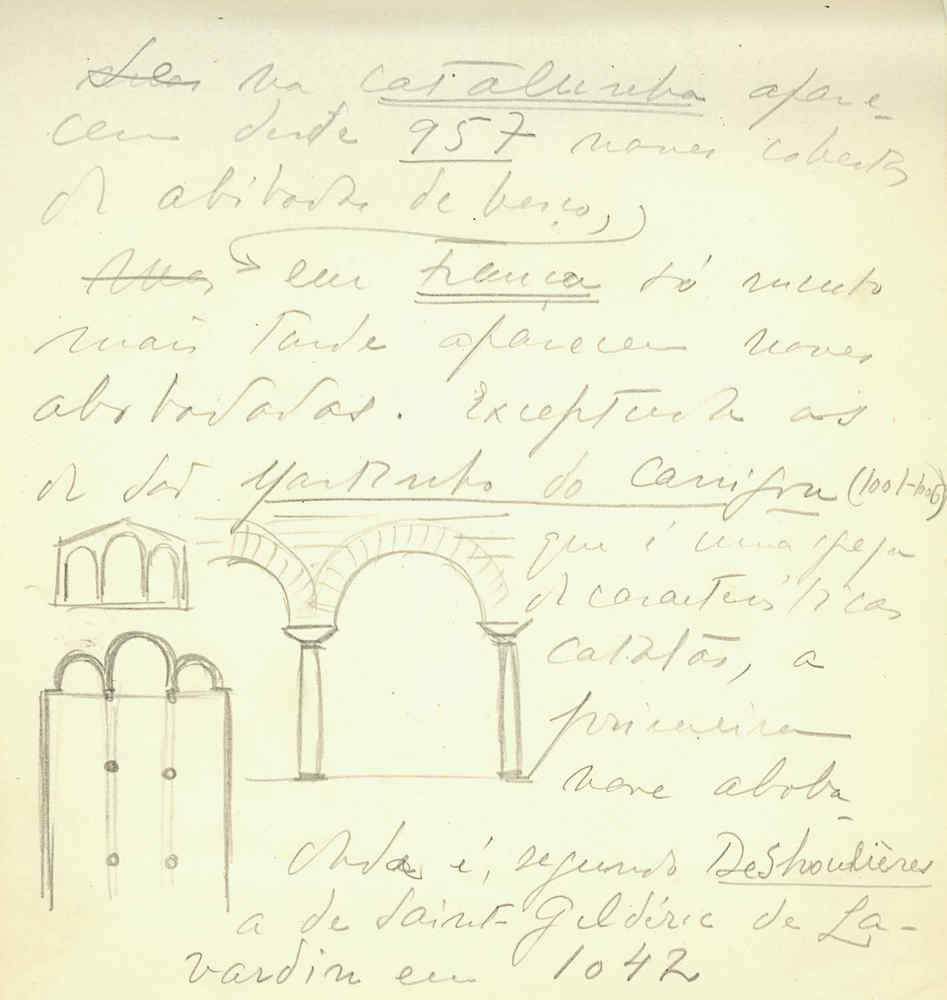 na Catalunha apare-
cem desde 957 naves cobertas
de abóbada de berço,
Mas em França só muito
mais tarde aparecem naves
abobadadas. Exceptuada as
de São Martinho do Canigou (1001-1006)
que é uma
de características
catalãs, a
primeira
nave aboba-
dada é, segundo Deshoulières
a de Saint-Gildéric de La-
vardin em 1042